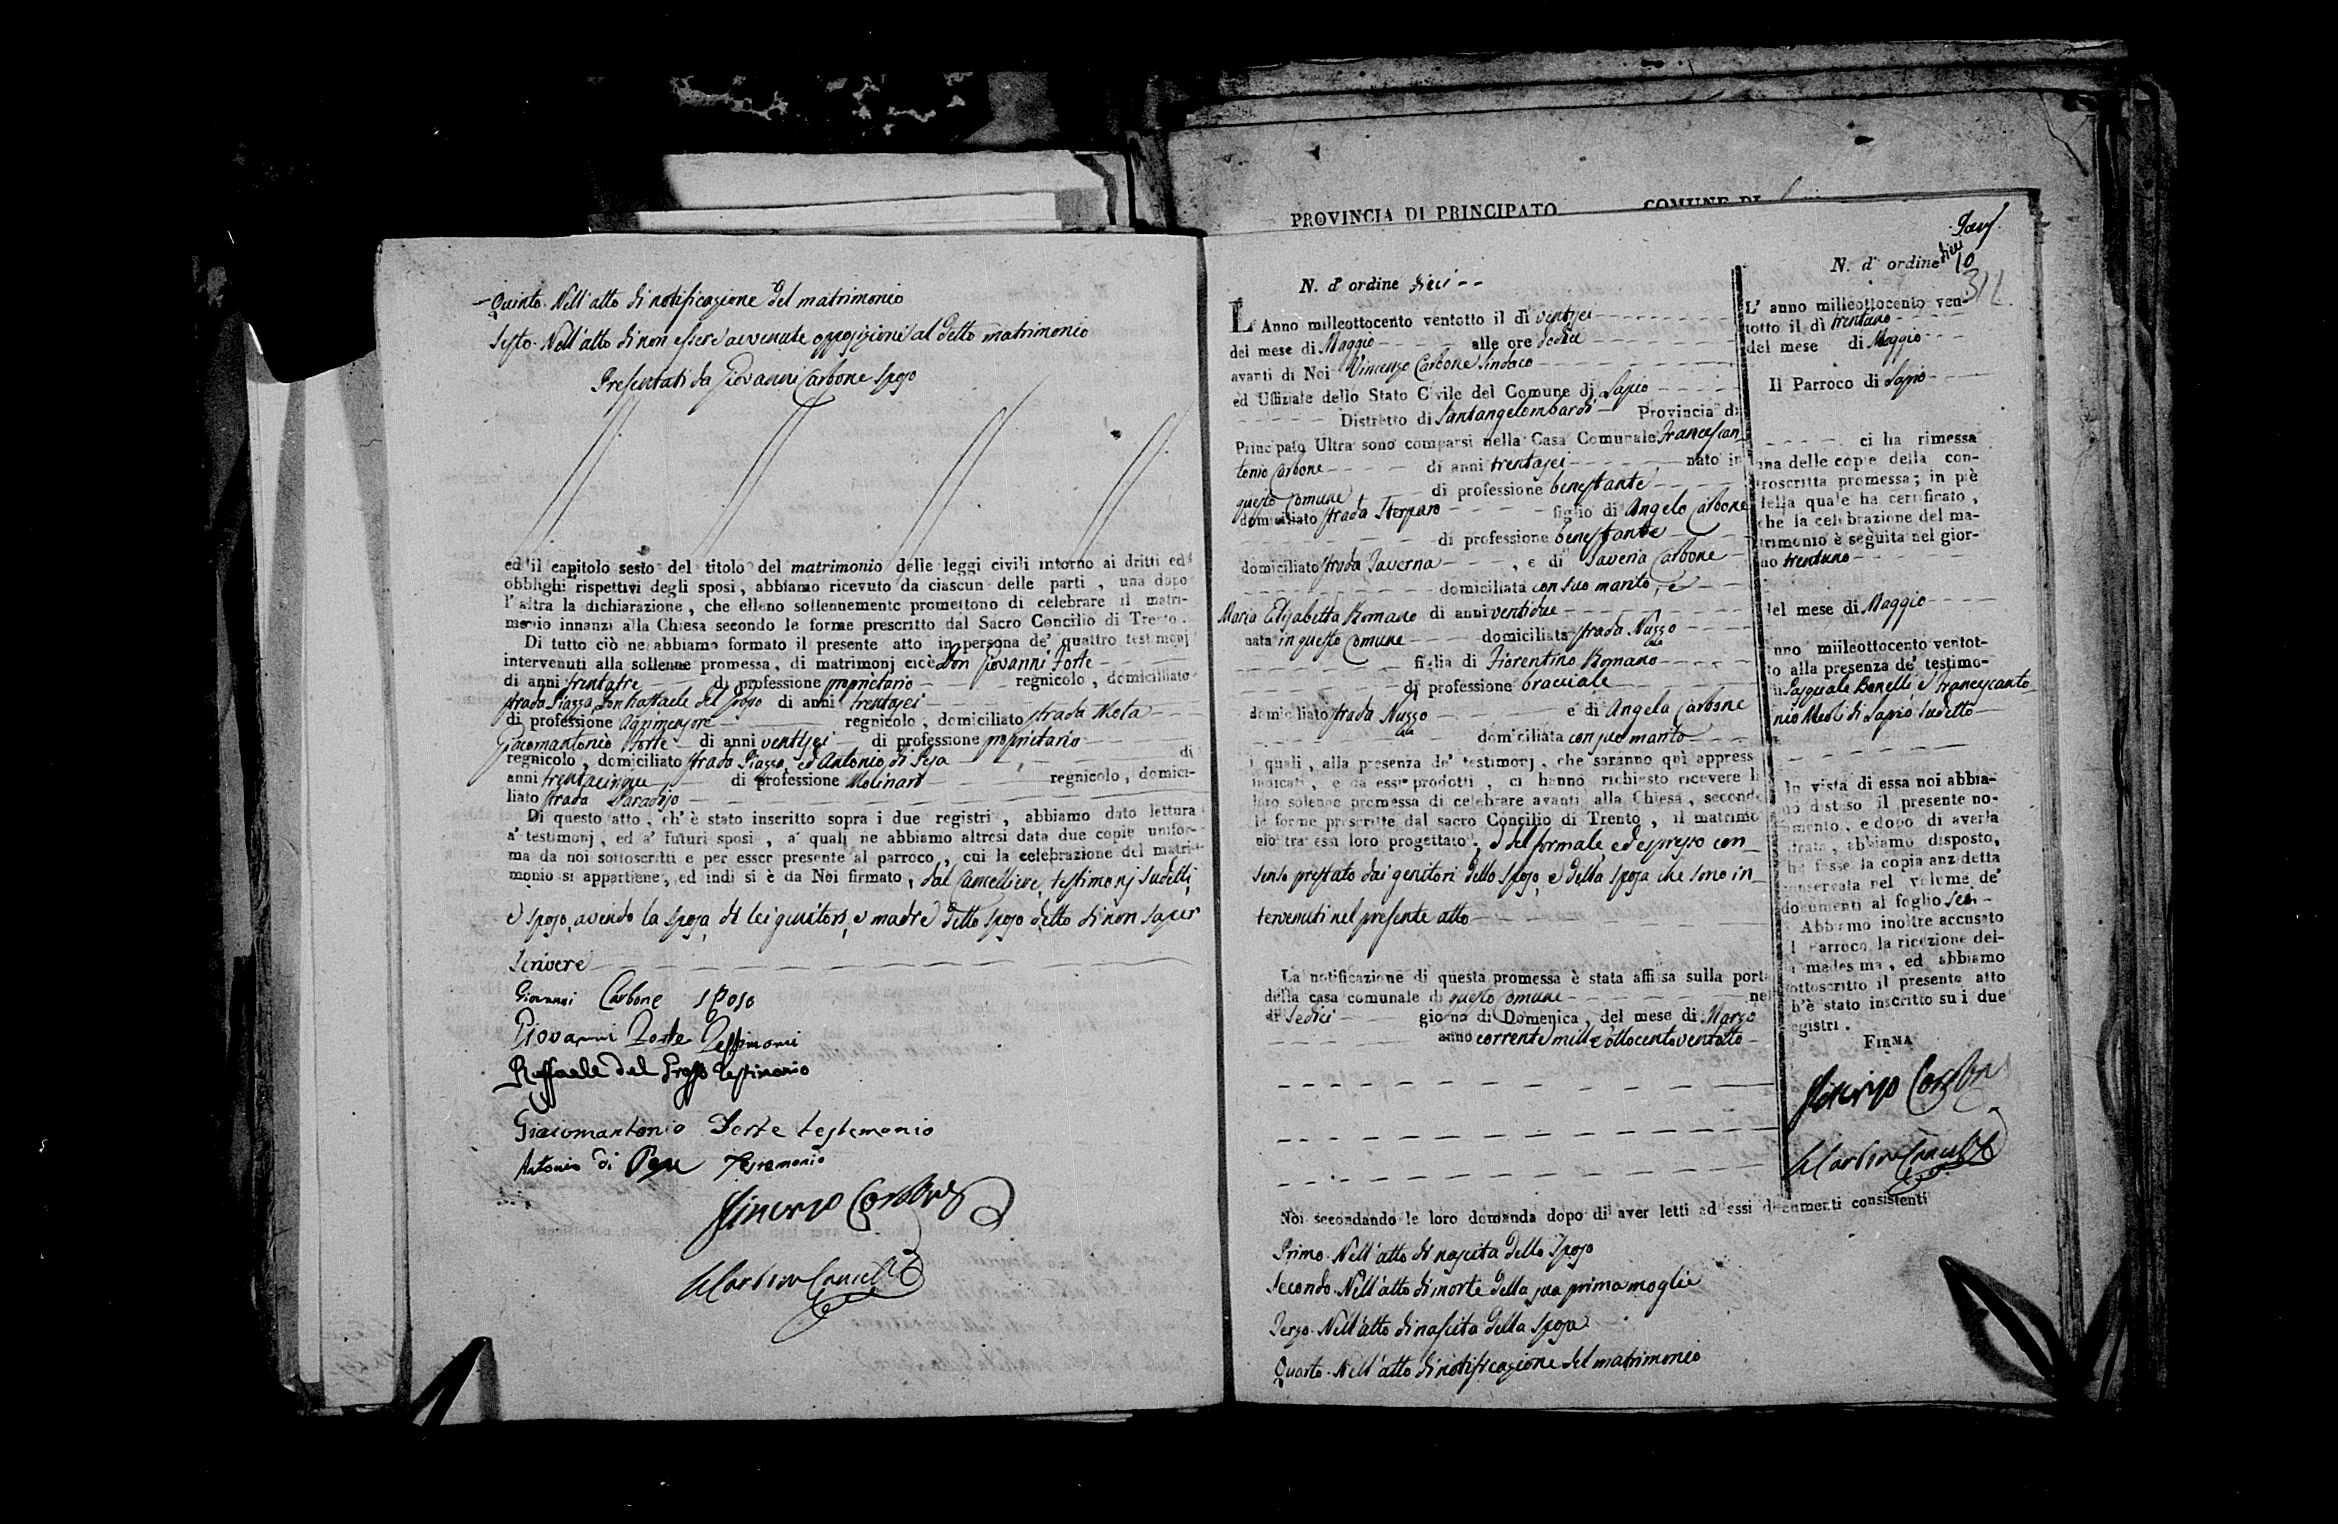 Quinto. Nell'atto di notificazione del matrimonio
Sesto. Nell'atto di non essere avvenute opposizioni al detto matrimonio
Presentati da Giovanni Carbone sposo
ed il capitolo sesto del titolo del matrimonio delle leggi civili intorno ai dritti ed
obblighi rispettivi degli sposi, abbiamo ricevuto da ciascun delle parti, una dopo
l'altra la dichiarazione, che elleno sollennemente promettono di celebrare il matri-
monio innanzi alla Chiesa secondo le forme prescritto dal Sacro Concilio di Trento.
Di tutto ciò ne abbiamo formato il presente atto in persona de' quattro testimonj
intervenuti alla sollenne promessa, di matrimonj cicè Don Giovanni Forte
di anni trentatre di professione proprietario regnicolo, domicilliato
strada Piazza, Don Raffaele del Grosso di anni trentasei
di professione Agrimensore regnicolo, domiciliato strada Meta
Giacomantonio Forte di anni ventisei di professione proprietario
regnicolo, domiciliato strada Piazza, ed Antonio di Pesa di
anni trentacinque di professione Molinaro regnicolo, domici-
liato strada Paradiso
Di questo atto, ch'è stato inscritto sopra i due registri, abbiamo dato lettura
a' testimonj, ed a' futuri sposi, a' quali ne abbiamo altresi data due copie unifor-
ma da noi sottoscritti e per esser presente al parroco, cui la celebrazione del matri-
monio si appartiene, ed indi si è da Noi firmato, dal Cancelliere, testimonj sudetti,
e sposo, avendo la sposa, di lei genitori, e madre dello sposo detto di non saper
scrivere
Giovanni Carbone sposo
Giovanni Forte Testimonii
Raffaele del Grosso Testimonio
Giacomantonio Forte testemonio
Antonio di Pesa Testemonio
Vincenzo Carbone
PROVINCIA DI PRINCIPATO COMUNE DI
N. d' ordine dieci
L'Anno milleottocento ventotto il di ventisei
del mese di Maggio alle ore dodici
avanti di Noi Vincenzo Carbone Sindaco
ed Uffiziale dello Stato Civile del Comune di Sapio
Distretto di Santangelombardi Provincia di
Principato Ultra sono comparsi nella Casa Comunale Francescan-
tonio Carbone di anni trentasei nato in
questo Comune di professione benestante
domiciliato strada Sterparo figlio di Angelo Carbone
di professione benestante
domiciliato strada Taverna, e di Saveria Carbone
domiciliata con suo marito, e
Maria Elisabetta Romano di anni ventidue
nata in questo Comune domiciliata strada Nuzzo
figlia di Fiorentino Romano
di professione bracciale
domiciliato strada Nuzzo e di Angela Carbone
domiciliata con suo marito
i quali, alla presenza de' testimonj, che saranno quì appress
indicati, e da essi prodotti, ci hanno richiesto ricevere l
loro solenne promessa di celebrare avanti alla Chiesa, second
le forme prescritte dal sacro Concilio di Trento, il matrimo
nio tra essi loro progettato, e del formale, ed espresso con-
senso prestato dai genitori dello sposo, e della sposa che sono in-
tervenuti nel presente atto
La notificazione di questa promessa è stata affissa sulla port
della casa comunale di questo Comune nel
di sedici giorno di Domenica, del mese di Marzo
anno corrente mille ottocento ventotto
Noi secondando le loro domanda dopo di aver letti ad essi documenti consistenti
Primo. Nell'atto di nascita dello Sposo
Secondo. Nell'atto di morte della sua prima moglie
Terzo. Nell'atto di nascita della Sposa
Quarto. Nell'atto di notificazione del matrimonio
N. d' ordine dieci
10
L' anno milleottocento ven-
totto il dì trentuno
del mese di Maggio
Il Parroco di Sapio
ci ha rimessa
una delle copie della con-
troscritta promessa; in piè
della quale ha certificato,
che la celebrazione del ma-
trimonio è sèguita nel gior-
no trentuno
del mese di Maggio
anno milleottocento ventot-
to alla presenza de' testimo-
nj Pasquale Bonelli e Francescanto-
nio Meoli di Sapio sudetto
In vista di essa noi abbia-
mo disteso il presente no-
tamento, e dopo di averla
cifrata, abbiamo disposto,
che fosse la copia anzidetta
conservata nel volume de'
documenti al foglio sei
Abbiamo inoltre accusato
l Parroco la ricezione del-
a medesma, ed abbiamo
sottoscritto il presente atto
ch'è stato inscritto su i due
registri.
FIRMA
Vincenzo Carbone